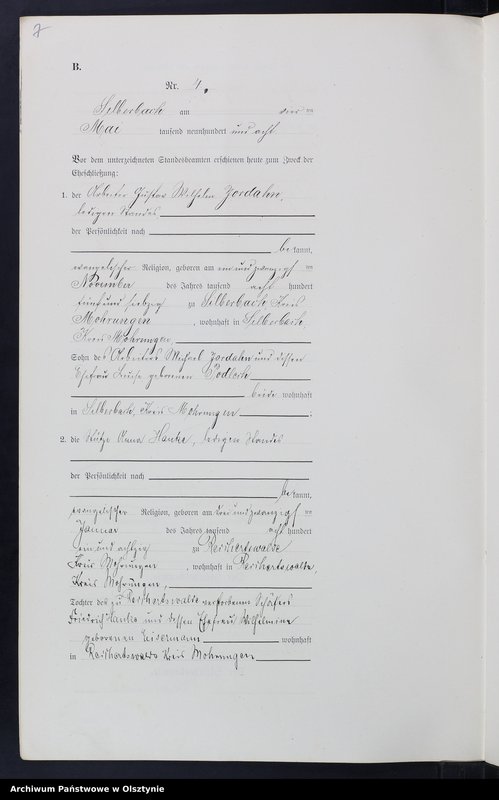 7
B.
Nr. 4.
Silberbach am vier ten
Mai tausend neunhundert und acht
Vor dem unterzeichneten Standesbeamten erschienen heute zum Zweck der
Eheschließung:
1. der Arbeiter Gustav Wilhelm Jordahn,
ledigen Standes
der Persönlichkeit nach
be kannt,
evangelischer Religion, geboren am ein und zwanzigs ten
November des Jahres tausend acht hundert
fünf und siebzig zu Silberbach Kreis
Mohrungen , wohnhaft in Silberbach,
Kreis Mohrungen,
Sohn des Arbeiters Michael Jordahn und dessen
Ehefrau Louise geborenen Podlech
beide wohnhaft
in Silberbach, Kreis Mohrungen ;
2. die Stütze Anna Hanke, ledigen Standes
der Persönlichkeit nach
be kannt,
evangelischer Religion, geboren am drei und zwanzigs ten
Januar des Jahres tausend acht hundert
ein und achtzig zu Reichertswalde
Kreis Mohrungen , wohnhaft in Reichertswalde,
Kreis Mohrungen,
Tochter des zu Reichertswalde verstorbenen Schäfers
Friedrich Hanke und dessen Ehefrau Wilhelmine
geborenen wohnhaft
in Reichertswalde Kreis Mohrungen
Archiwum Państwowe w Olsztynie